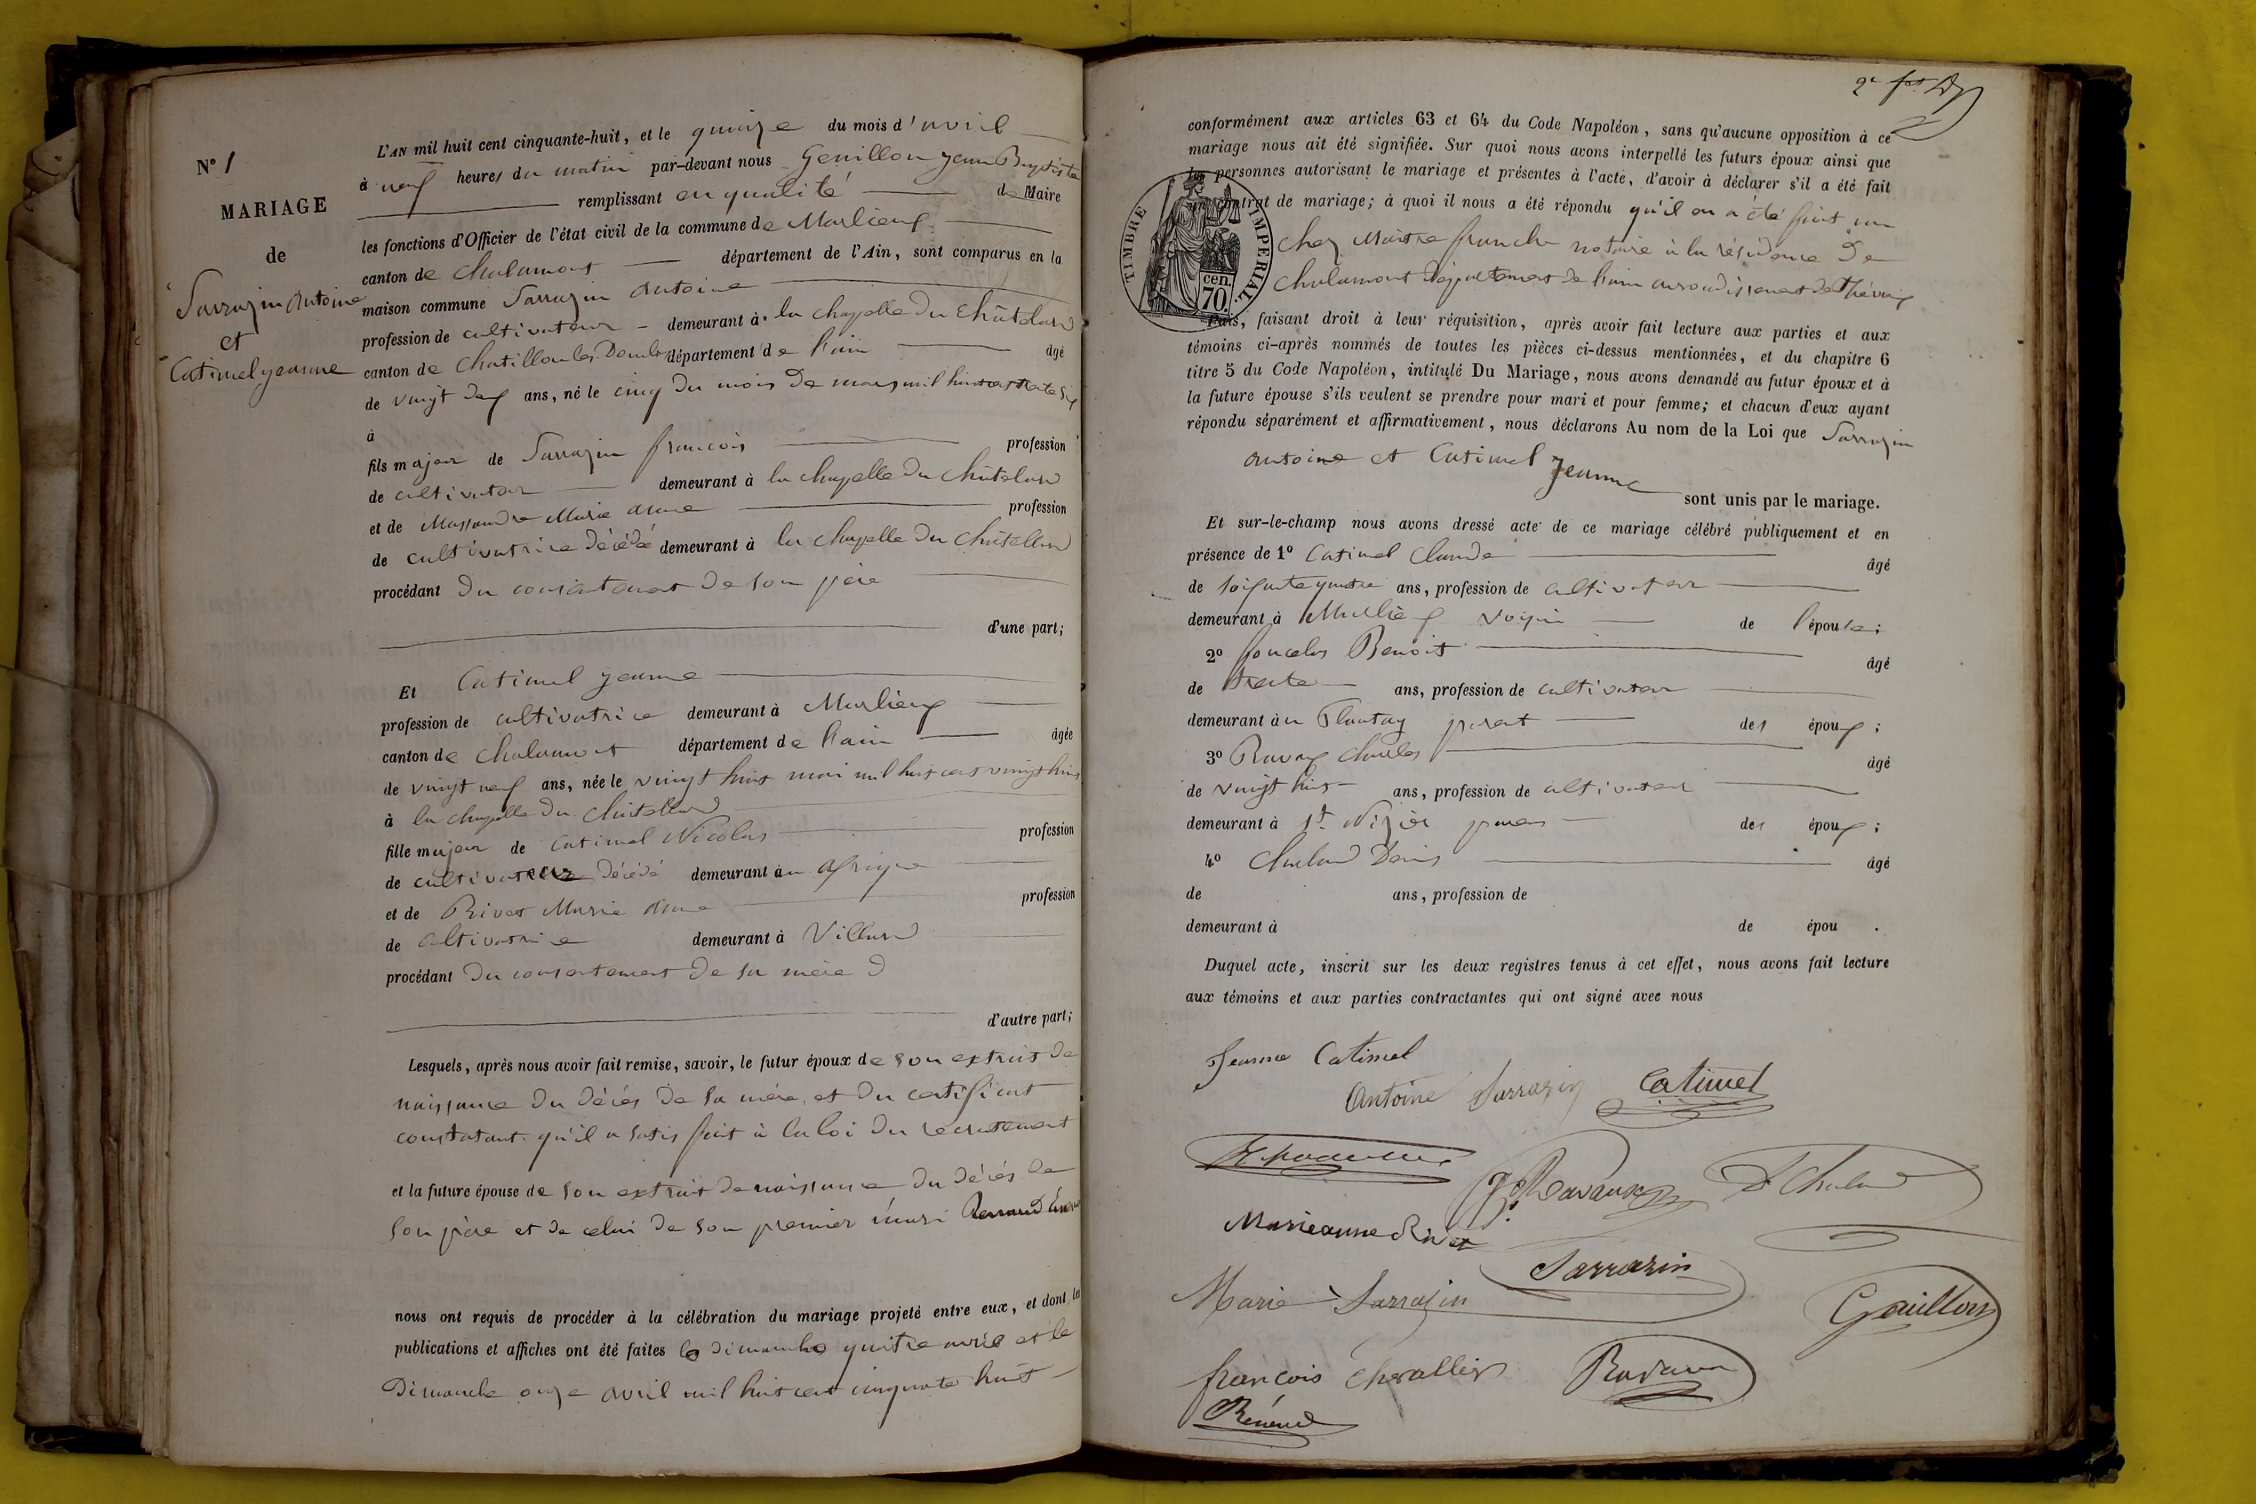 N° 1
MARIAGE
de
Sarrazin Antoine
et
Catimel jeanne
L'AN mil huit cent cinquante-huit, et le quinze du mois d'avril
à neuf heures du matin par-devant nous Genillon jean Baptiste
remplissant en qualité de Maire
les fonctions d'Officier de l'état civil de la commune de Marlieux
canton de Chalamont département de l'Ain, sont comparus en la
maison commune Sarrazin Antoine
profession de cultivateur demeurant à la chapelle du Châtelard
canton de Chatillon les Dombes département de l'ain âgé
de vingt deux ans, né le cinq du mois de mars mil huit cent trente six
à
fils majeur de Sarrazin françois profession
de cultivateur demeurant à la chapelle du châtelard
et de Massandre Marie Anne profession
de cultivatrice décédé demeurant à la chapelle du châtellard
procédant du consentement de son père
d'une part;
Et Catimel jeanne
profession de cultivatrice demeurant à Marlieux
canton de Chalamont département de l'ain âgée
de vingt neuf ans, née le vingt huit mai mil huit cent vingt huit
à la chapelle du châtellard
fille majeur de Catimel Nicolas profession
de cultivateur décédé demeurant à en afrique
et de Rivet Marie Anne profession
de cultivatrice demeurant à Villard
procédant du consentement de sa mère
d'autre part;
Lesquels, après nous avoir fait remise, savoir, le futur époux de son extrait de
naissance du décés de sa mère, et du certificat
constatant qu'il a satis fait à la loi du recrutement
et la future épouse de son extrait de naissance du décés de
son père et de celui de son premier mari
nous ont requis de procéder à la célébration du mariage projeté entre eux, et dont les
publications et affiches ont été faites le dimanche quatre avril et le
Dimanche onze avril mil huit cent cinquante huit
conformément aux articles 63 et 64 du Code Napoléon, sans qu'aucune opposition à ce
mariage nous ait été signifiée. Sur quoi nous avons interpellé les futurs époux ainsi que
les personnes autorisant le mariage et présentes à l'acte, d'avoir à déclarer s'il a été fait
contrat de mariage; à quoi il nous a été répondu qu'il en a été fait un
chez Maitre franche notaire à la résidence De
Chalamont département de l'ain arrondissement de Trévoux
TIMBRE IMPERIAL.
70 cen.
Puis, faisant droit à leur réquisition, après avoir fait lecture aux parties et aux
témoins ci-après nommés de toutes les pièces ci-dessus mentionnées, et du chapitre 6
titre 5 du Code Napoléon, intitulé Du Mariage, nous avons demandé au futur époux et à
la future épouse s'ils veulent se prendre pour mari et pour femme; et chacun d'eux ayant
répondu séparément et affirmativement, nous déclarons Au nom de la Loi que Sarrazin
Antoine et Catimel Jeanne
sont unis par le mariage.
Et sur-le-champ nous avons dressé acte de ce mariage célébré publiquement et en
présence de 1° Catimel Claude âgé
de soixante quatre ans, profession de cultivateur
demeurant à Marlieux voisin de l'épouse;
2° Benoit âgé
de trente ans, profession de cultivateur
demeurant à u Plantay parent des époux;
3° Ravaux Charles âgé
de vingt huit ans, profession de cultivateur
demeurant à St Nizier parent des époux;
4° Chaland Denis âgé
de ans, profession de
demeurant à de épou .
Duquel acte, inscrit sur les deux registres tenus à cet effet, nous avons fait lecture
aux témoins et aux parties contractantes qui ont signé avec nous
Jeanne Catimel
Antoine Sarrazin Catimel
Ravaux D Chaland
Marieanne Rivet
Sarrazin
Marie Sarrazin
Genillon
françois chevallier Ravaux